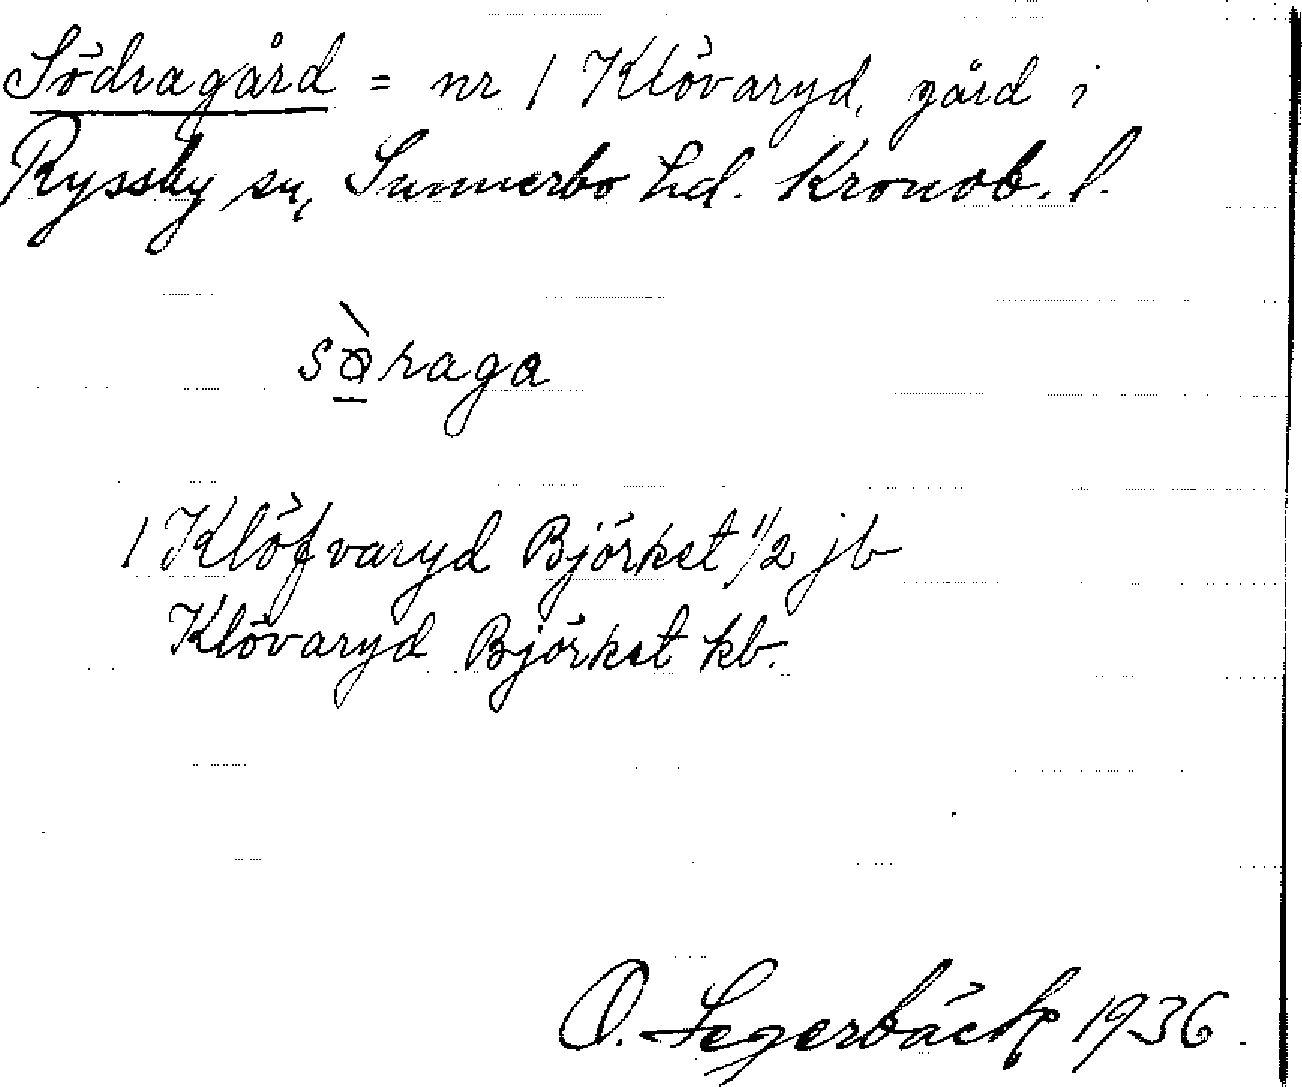 Södragård = nr 1 Klövaryd, gård i
Ryssby sn, Sunnerbo hd. Kronob. l.
sø̀raga
1 Klöfvaryd Björket 1/2 jb
Klövaryd Björket kb.
O. Segerbäck 1936.